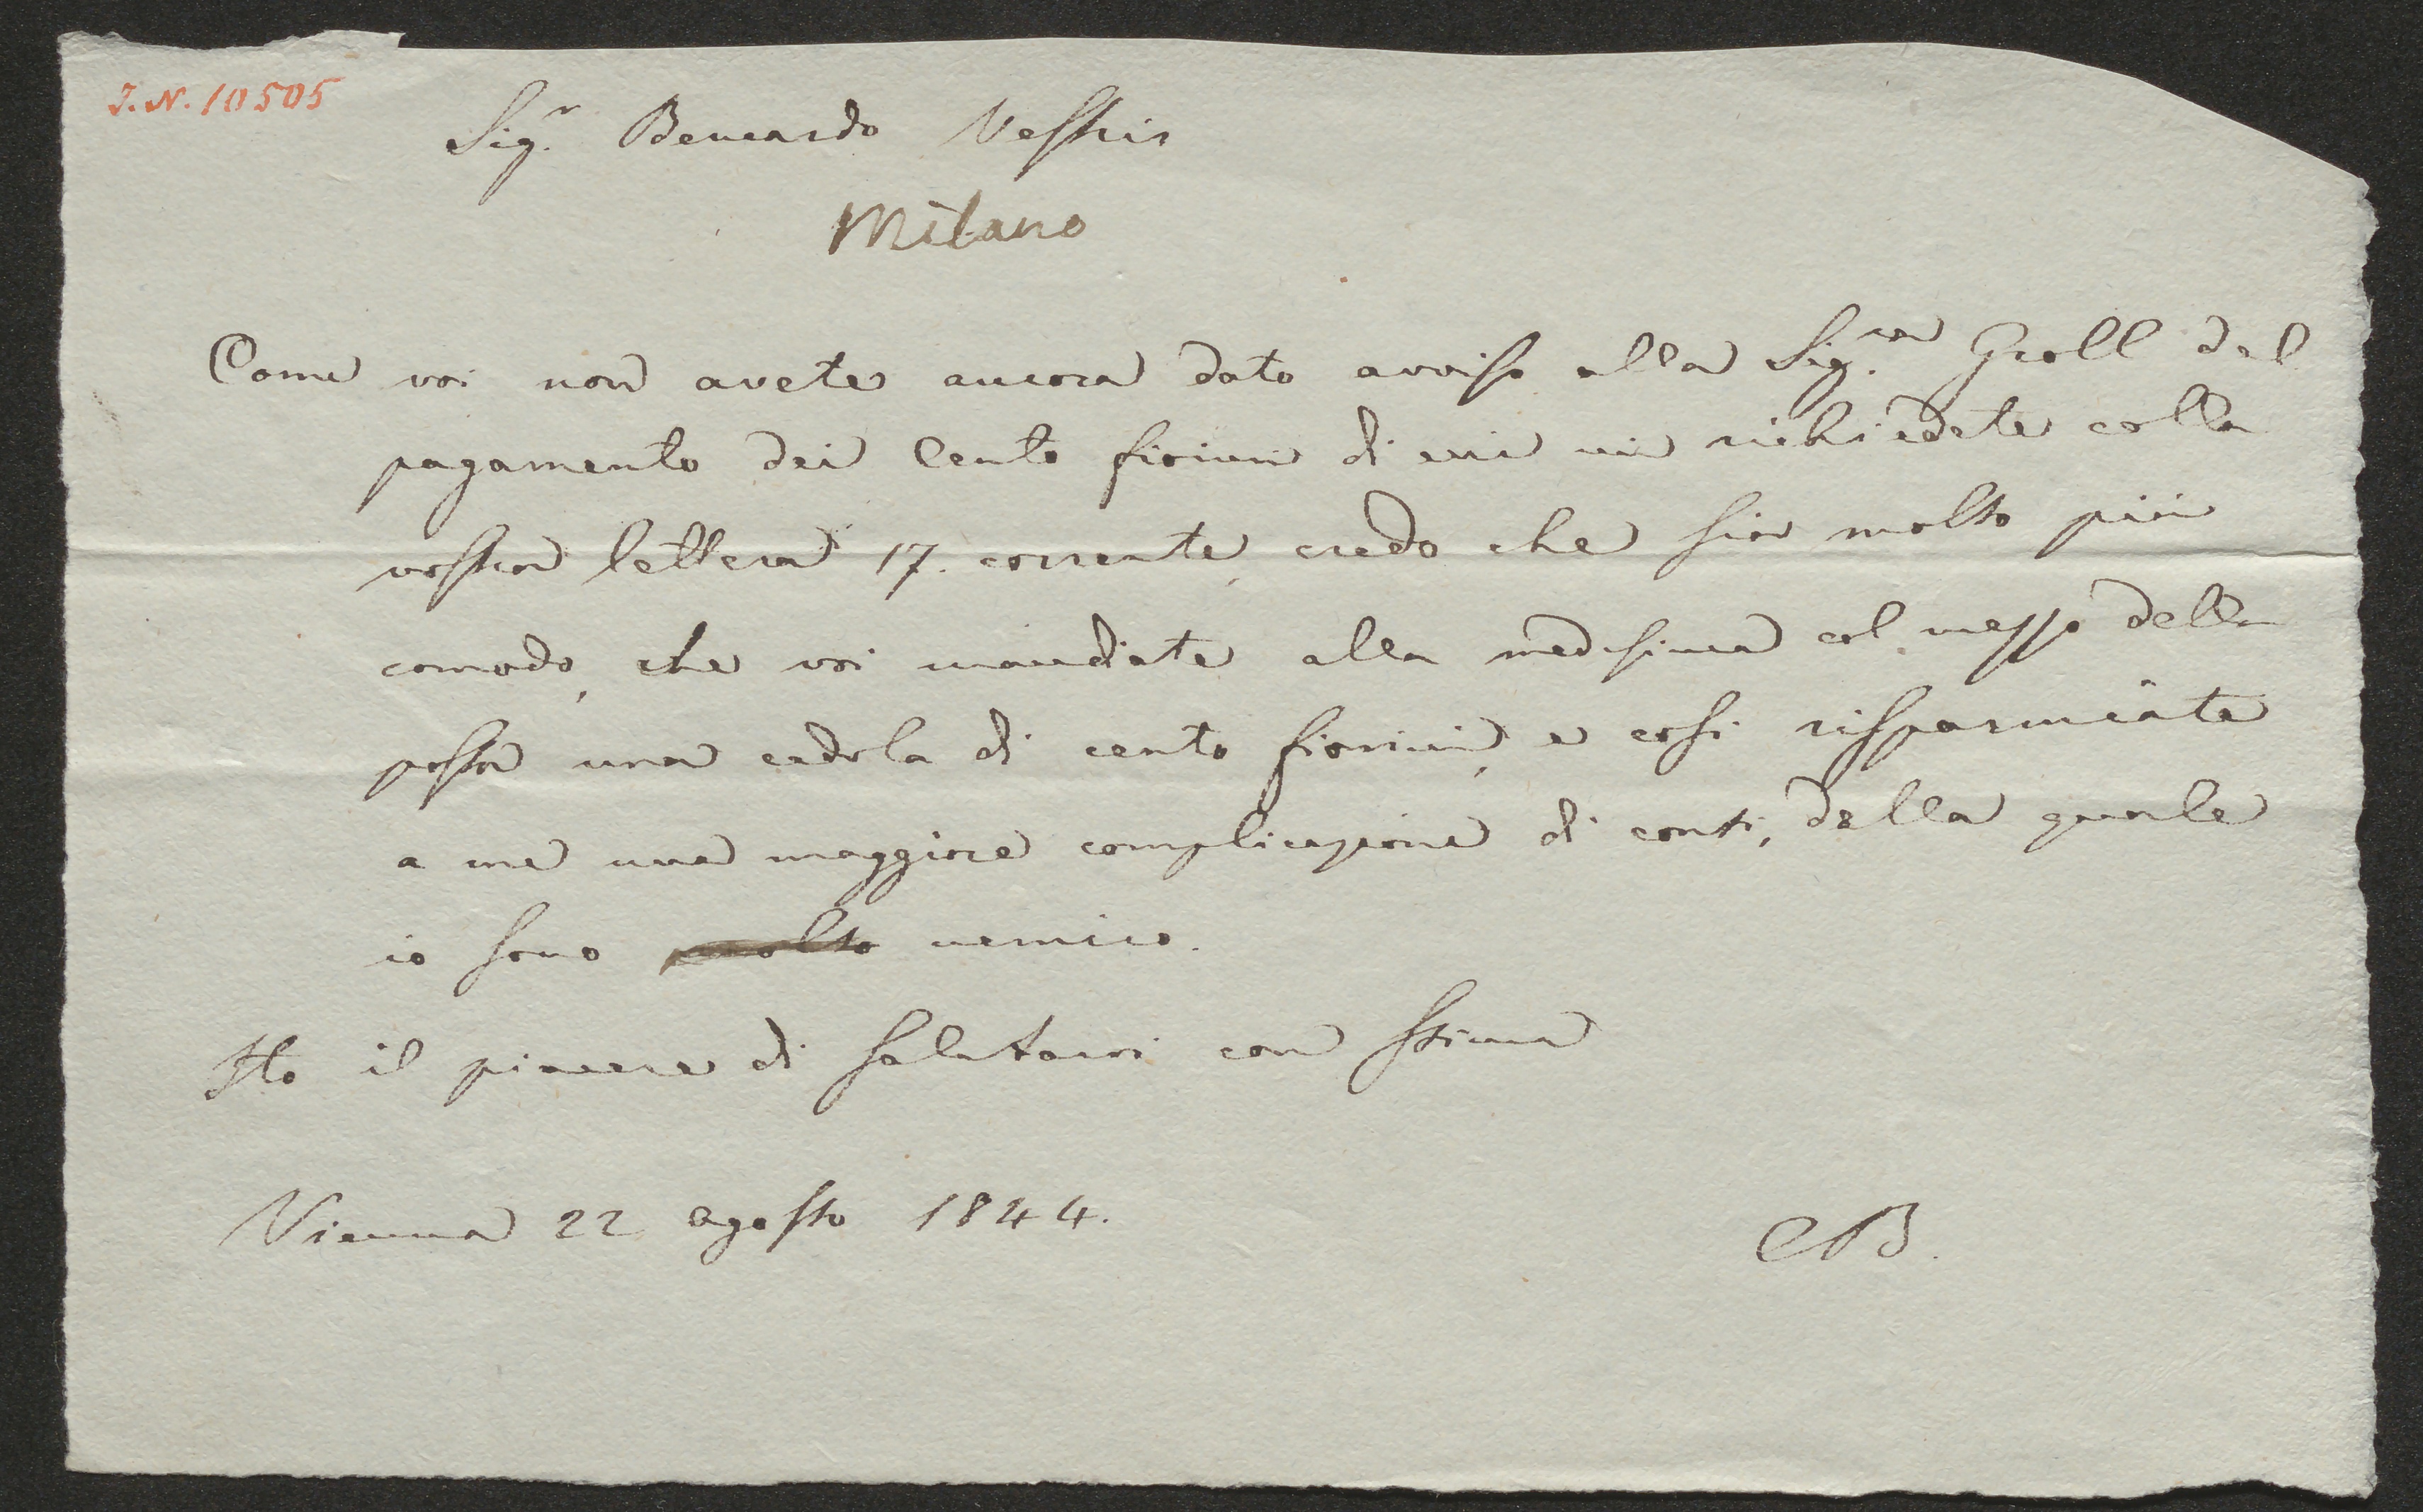 I.N. 10505
Sig.r Bernardo Vestris
Milano
Come voi non avete ancora dato avviso alla Sig.ra Groll del
pagamento dei Cento fiorini di cui mi richiedete colla
vostra lettera 17. corrente, credo che sia molto più
comodo, che voi mandiate alla medesima col mezzo della
posta una cedola di cento fiorini, e cosi risparmiate
a me una maggiore complicazione di conti, della quale
io sono molto nemico.
Ho il piacere di salutarvi con stima
Vienna 22 agosto 1844.
CB.